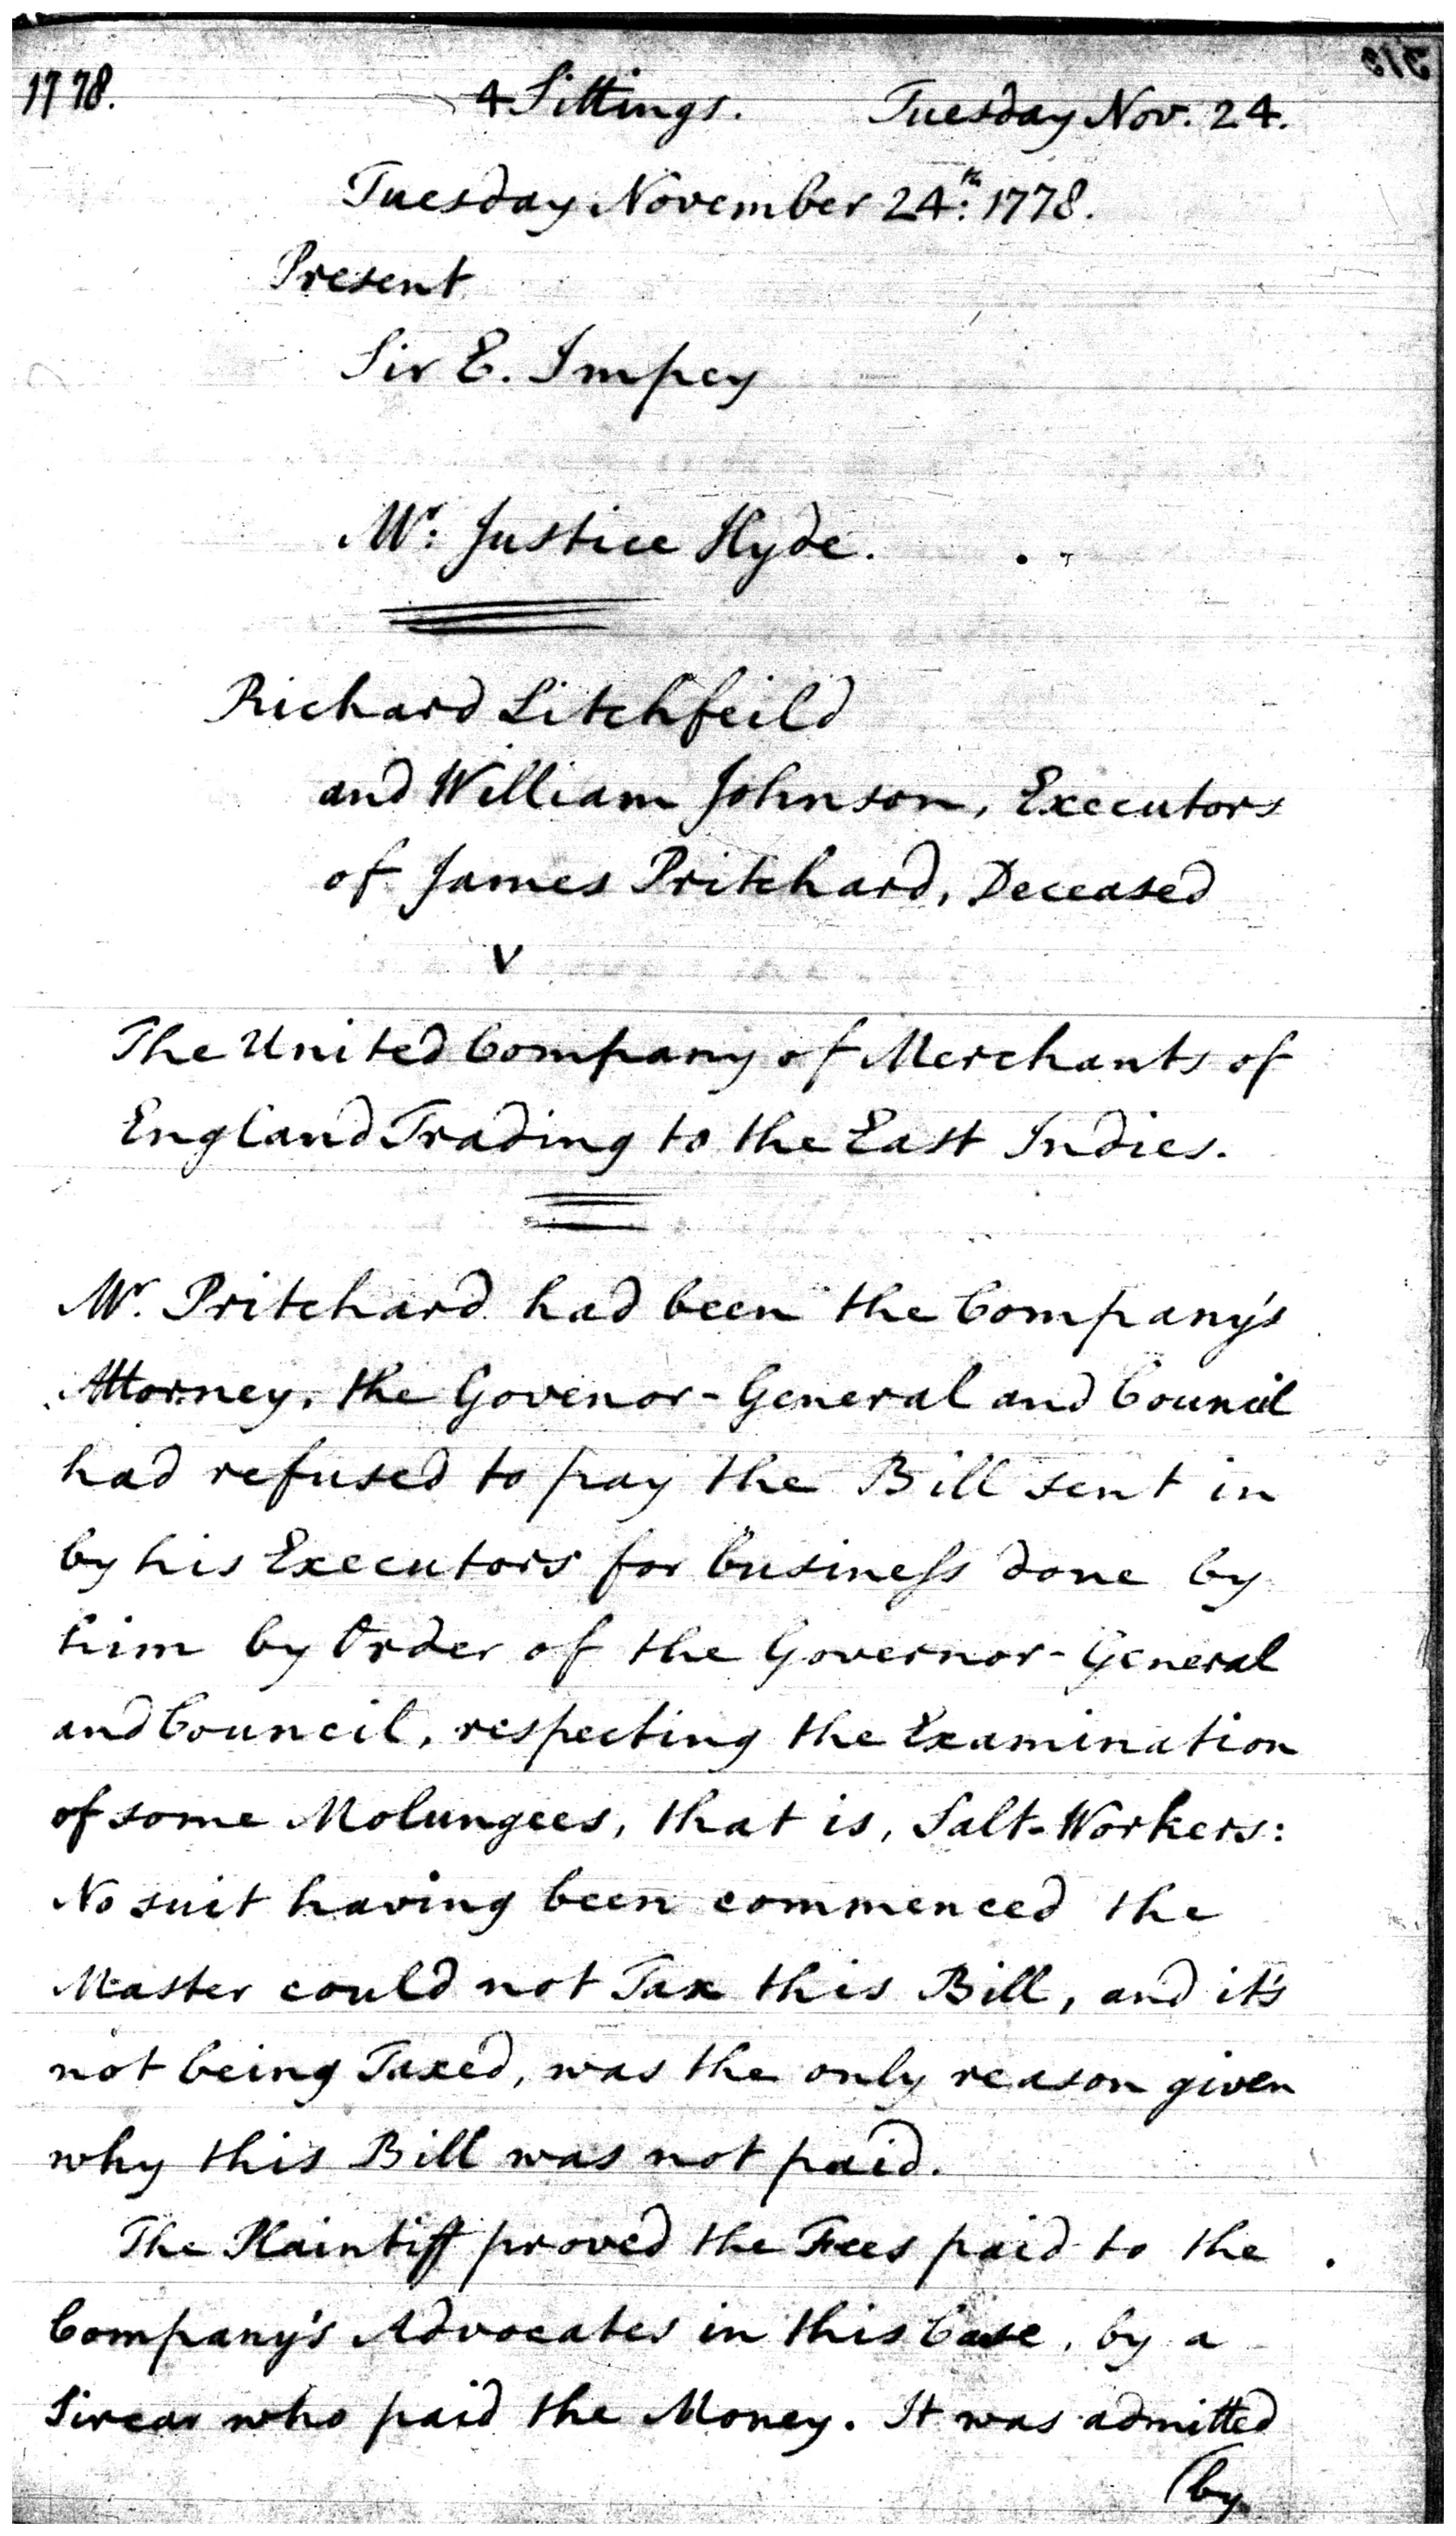 1778. 4 Sittings. Tuesday Nov. 24.
Tuesday November 24th: 1778.
Present
Sir E. Impey
Mr: Justice Hyde.
Richard Litchfeild
and William Johnson, Executors
of James Pritchard, Deceased
v
The United Company of Merchants of
England Trading to the East Indies.
Mr. Pritchard had been the Company's
Attorney, the Govenor-General and Council
had refused to pay the Bill sent in
by his Executors for business done by
him by Order of the Governor-General
and Council, respecting the Examination
of some Molungees, that is, Salt-Workers:
No suit having been commenced the
Master could not Tax this Bill, and it's
not being Taxed, was the only reason given
why this Bill was not paid.
The Plaintiff proved the Fees paid to the
Company's Advocates in this Case, by a
Sircar who paid the Money. It was admitted
(by